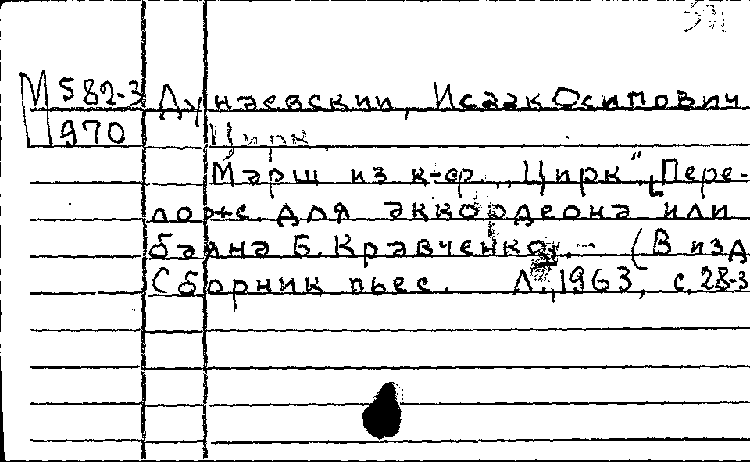 М 582-3 Дунаевский, Исаак Осипович
970 Цирк.
Марш из к-ф. „Цирк". [Пере-
лож. для аккордеона или
баяна Б. Кравченко. – (В изд
Сборник пьес. Л., 1963, с. 28-3